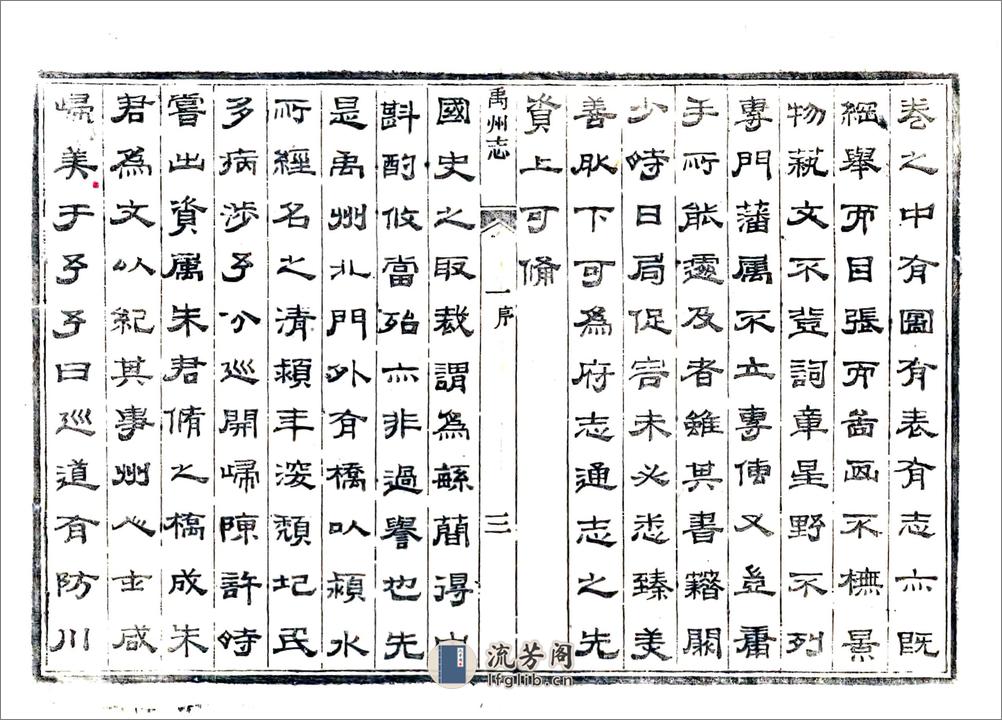 卷之中有圖有表有志亦既
綱舉而目張而不橅景
物蓺文不登詞章星野不列
專門藩屬不立專傳又豈庸
手所能遽及者雖其書籍闕
少時日局促容未必悉臻美
善取下可為府志通志之先
資上可備
禹州志 一序 三
國史之取裁謂為緐簡得中
斟酌攸當殆亦非過譽也先
是禹州北門外有橋以潁水
所經名之清潁年深頹圮民
多病涉予分巡開歸陳許時
嘗出資屬朱君脩之橋成朱
君為文以紀其事州人士咸
歸美于予予曰巡道有防川
流芳阁
lfglib.cn